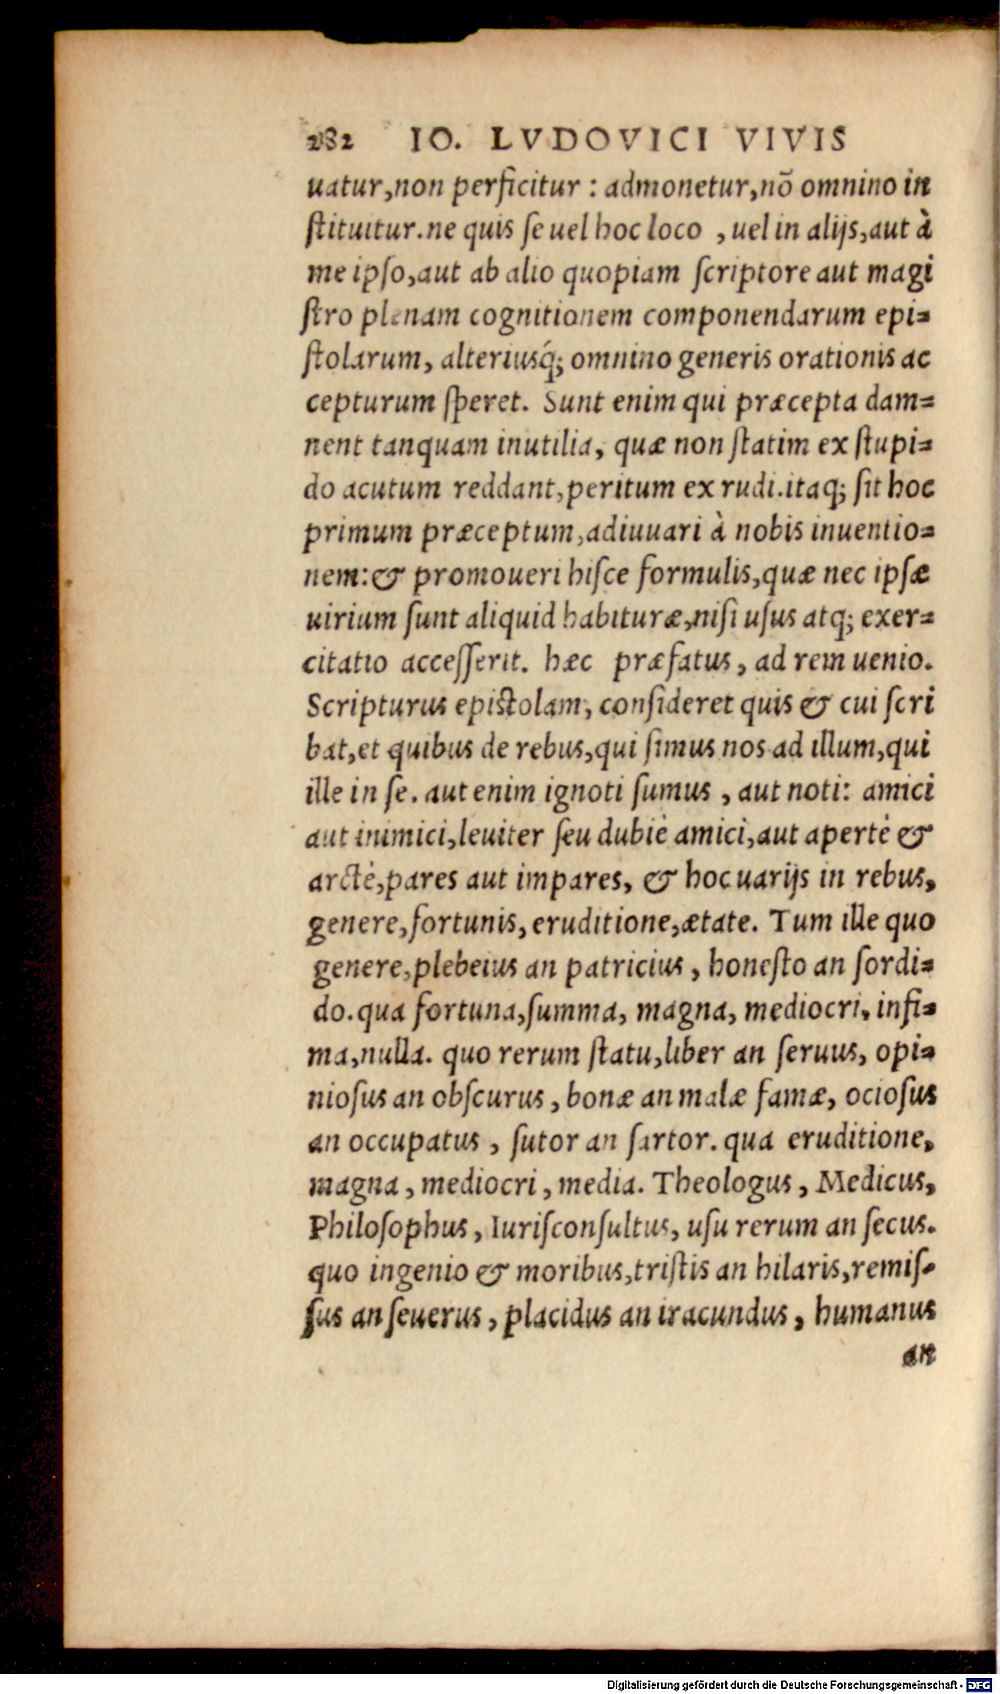 282 IO. LVDOVICI VIVIS
uatur,non perficitur : admonetur,nō omnino in
ſtituitur.ne quis ſe uel hoc loco , uel in alijs,aut à
me ipſo,aut ab alio quopiam ſcriptore aut magi
ſtro plenam cognitionem componendarum epi=
ſtolarum, alteriusq́; omnino generis orationis ac
cepturum ſperet. Sunt enim qui præcepta dam=
nent tanquam inutilia, quæ non ſtatim ex ſtupi=
do acutum reddant,peritum ex rudi.itaq; ſit hoc
primum præceptum,adiuuari à nobis inuentio=
nem:& promoueri hiſce formulis,quæ nec ipſæ
uirium ſunt aliquid habituræ,niſi uſus atq; exer=
citatio acceſſerit. hæc præfatus, ad rem uenio.
Scripturus epiſtolam, conſideret quis & cui ſcri
bat,et quibus de rebus,qui ſimus nos ad illum,qui
ille in ſe. aut enim ignoti ſumus , aut noti: amici
aut inimici,leuiter ſeu dubiè amici,aut apertè &
arctè,pares aut impares, & hoc uarijs in rebus,
genere,fortunis, eruditione,ætate. Tum ille quo
genere,plebeius an patricius , honeſto an ſordi=
do.qua fortuna,ſumma, magna, mediocri, infi=
ma,nulla. quo rerum ſtatu,liber an ſeruus, opi=
nioſus an obſcurus , bonæ an malæ famæ, ocioſus
an occupatus , ſutor an ſartor. qua eruditione,
magna , mediocri , media. Theologus , Medicus,
Philoſophus , Iuriſconſultus, uſu rerum an ſecus.
quo ingenio & moribus,triſtis an hilaris,remiſ=
ſus an ſeuerus , placidus an iracundus , humanus
an
Digitalisierung gefördert durch die Deutsche Forschungsgemeinschaft - DFG